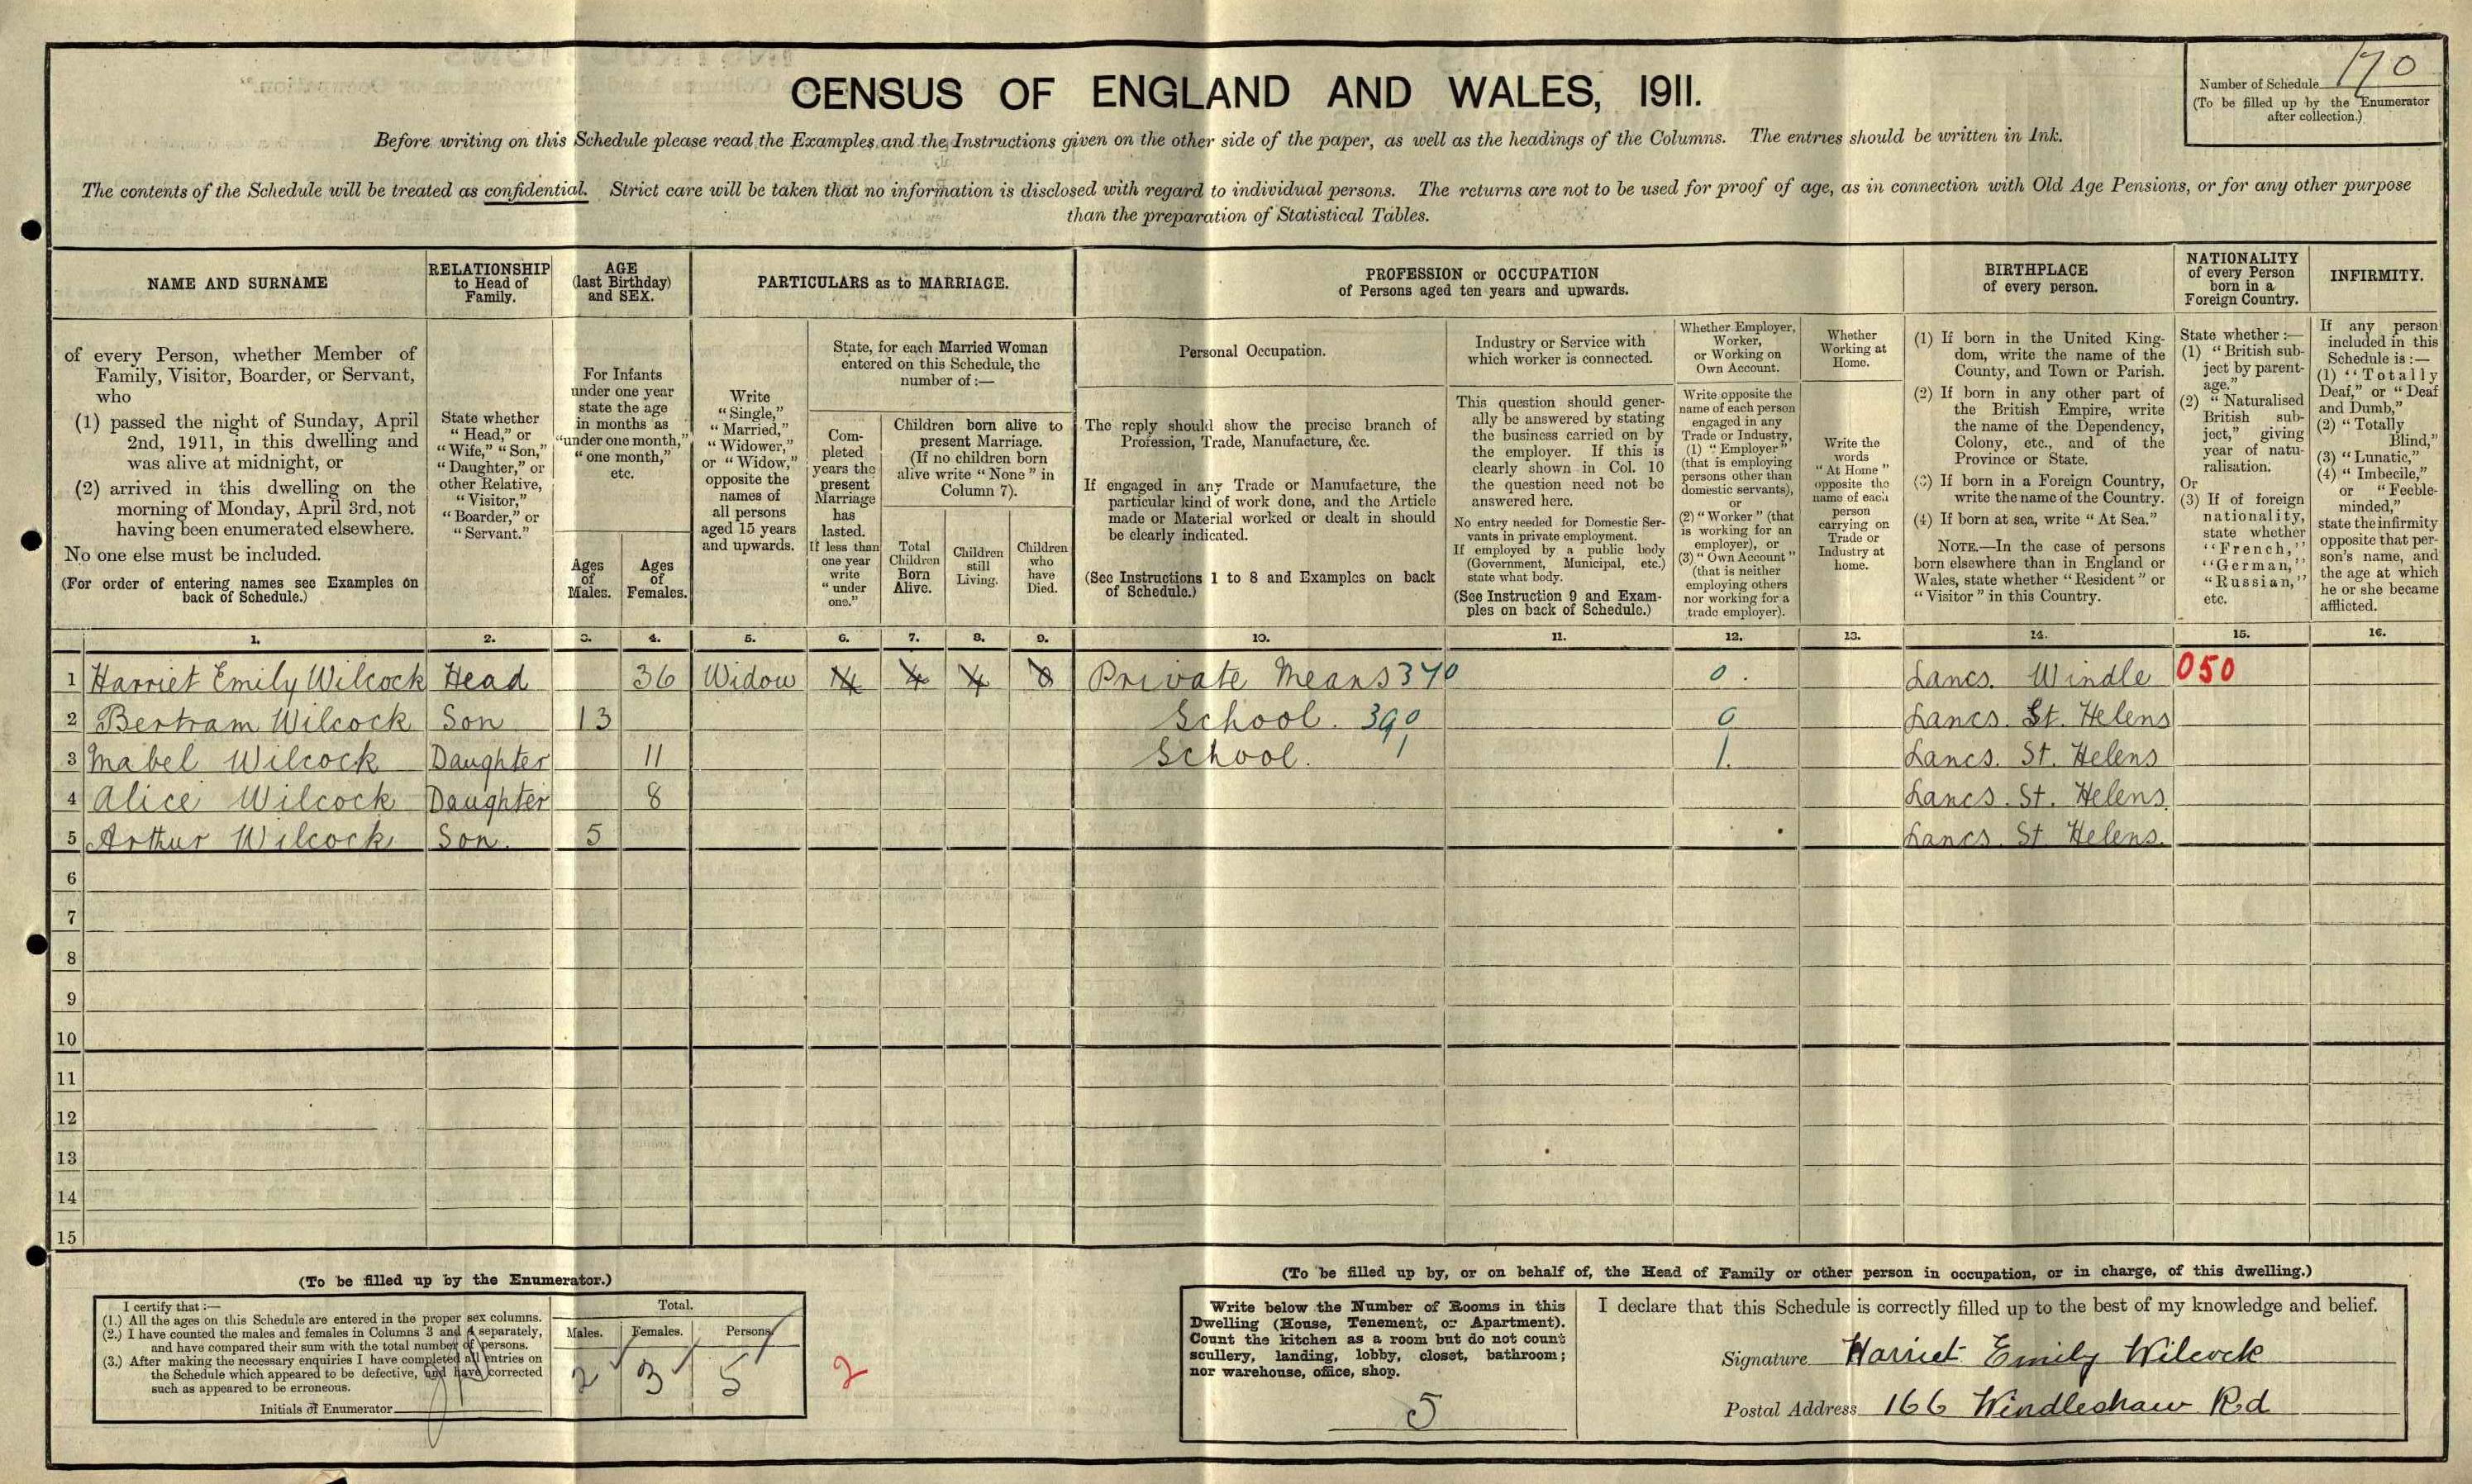 CENSUS OF ENGLAND AND WALES, 1911.
Number of Schedule 170
(To be filled up by the Enumerator
after collection.)
Before writing on this Schedule please read the Examples and the Instructions given on the other side of the paper, as well as the headings of the Columns. The entries should be written in Ink.
The contents of the Schedule will be treated as confidential. Strict care will be taken that no information is disclosed with regard to individual persons. The returns are not to be used for proof of age, as in connection with Old Age Pensions, or for any other purpose
than the preparation of Statistical Tables.
NAME AND SURNAME
of every Person, whether Member of
Family, Visitor, Boarder, or Servant,
who
(1) passed the night of Sunday, April
2nd, 1911, in this dwelling and
was alive at midnight, or
(2) arrived in this dwelling on the
morning of Monday, April 3rd, not
having been enumerated elsewhere.
No one else must be included.
(For order of entering names see Examples on
back of Schedule.)
RELATIONSHIP
to Head of
Family.
State whether
"Head," or
"Wife," "Son,"
"Daughter," or
other Relative,
"Visitor,"
"Boarder," or
"Servant."
AGE
(last Birthday)
and SEX.
For Infants
under one year
state the age
in months as
"under one month,"
"one month,"
etc.
Ages
of
Males.
Ages
of
Females.
PARTICULARS as to MARRIAGE.
Write
"Single,"
"Married,"
"Widower,"
or "Widow,"
opposite the
names of
all persons
aged 15 years
and upwards.
State, for each Married Woman
entered on this Schedule, the
number of :—
Com-
pleted
years the
present
Marriage
has
lasted.
If less than
one year
write
"under
one."
Children born alive to
present Marriage.
(If no children born
alive write "None" in
Column 7).
Total
Children
Born
Alive.
Children
still
Living.
Children
who
have
Died.
PROFESSION or OCCUPATION
of Persons aged ten years and upwards.
Personal Occupation.
The reply should show the precise branch of
Profession, Trade, Manufacture, &c.
If engaged in any Trade or Manufacture, the
particular kind of work done, and the Article
made or Material worked or dealt in should
be clearly indicated.
(See Instructions 1 to 8 and Examples on back
of Schedule.)
Industry or Service with
which worker is connected.
This question should gener-
ally be answered by stating
the business carried on by
the employer. If this is
clearly shown in Col. 10
the question need not be
answered here.
No entry needed for Domestic Ser-
vants in private employment.
If employed by a public body
(Government, Municipal, etc.)
state what body.
(See Instruction 9 and Exam-
ples on back of Schedule.)
Whether Employer,
Worker,
or Working on
Own Account.
Write opposite the
name of each person
engaged in any
Trade or Industry,
(1) "Employer"
(that is employing
persons other than
domestic servants),
or
(2) "Worker" (that
is working for an
employer), or
(3) "Own Account"
(that is neither
employing others
nor working for a
trade employer).
Whether
Working at
Home.
Write the
words
"At Home"
opposite the
name of each
person
carrying on
Trade or
Industry at
home.
BIRTHPLACE
of every person.
(1) If born in the United King-
dom, write the name of the
County, and Town or Parish.
(2) If born in any other part of
the British Empire, write
the name of the Dependency,
Colony, etc., and of the
Province or State.
(3) If born in a Foreign Country,
write the name of the Country.
(4) If born at sea, write "At Sea."
NOTE.—In the case of persons
born elsewhere than in England or
Wales, state whether "Resident" or
"Visitor" in this Country.
NATIONALITY
of every Person
born in a
Foreign Country.
State whether :—
(1) "British sub-
ject by parent-
age."
(2) "Naturalised
British sub-
ject," giving
year of natu-
ralisation.
Or
(3) If of foreign
nationality,
state whether
"French,"
"German,"
"Russian,"
etc.
INFIRMITY.
If any person
included in this
Schedule is :—
(1) "Totally
Deaf," or "Deaf
and Dumb,"
(2) "Totally
Blind,"
(3) "Lunatic,"
(4) "Imbecile,"
or "Feeble-
minded,"
state the infirmity
opposite that per-
son's name, and
the age at which
he or she became
afflicted.
1. 2. 3. 4. 5. 6. 7. 8. 9. 10. 11. 12. 13. 14. 15. 16.
1 Harriet Emily Wilcock Head 36 Widow 4 4 0 Private Means 370 0. Lancs. Windle 050
2 Bertram Wilcock Son 13 School. 390 0 Lancs. St. Helens
3 Mabel Wilcock Daughter 11 School. 1 1. Lancs. St. Helens
4 Alice Wilcock Daughter 8 Lancs. St. Helens
5 Arthur Wilcock Son. 5 Lancs. St. Helens.
6
7
8
9
10
11
12
13
14
15
(To be filled up by the Enumerator.)
I certify that :—
(1.) All the ages on this Schedule are entered in the proper sex columns.
(2.) I have counted the males and females in Columns 3 and 4 separately,
and have compared their sum with the total number of persons.
(3.) After making the necessary enquiries I have completed all entries on
the Schedule which appeared to be defective, and have corrected
such as appeared to be erroneous.
Initials of Enumerator
Total.
Males. Females. Persons.
2 3 5
2
(To be filled up by, or on behalf of, the Head of Family or other person in occupation, or in charge, of this dwelling.)
Write below the Number of Rooms in this
Dwelling (House, Tenement, or Apartment).
Count the kitchen as a room but do not count
scullery, landing, lobby, closet, bathroom;
nor warehouse, office, shop.
5
I declare that this Schedule is correctly filled up to the best of my knowledge and belief.
Signature Harriet Emily Wilcock
Postal Address 166 Windleshaw Rd